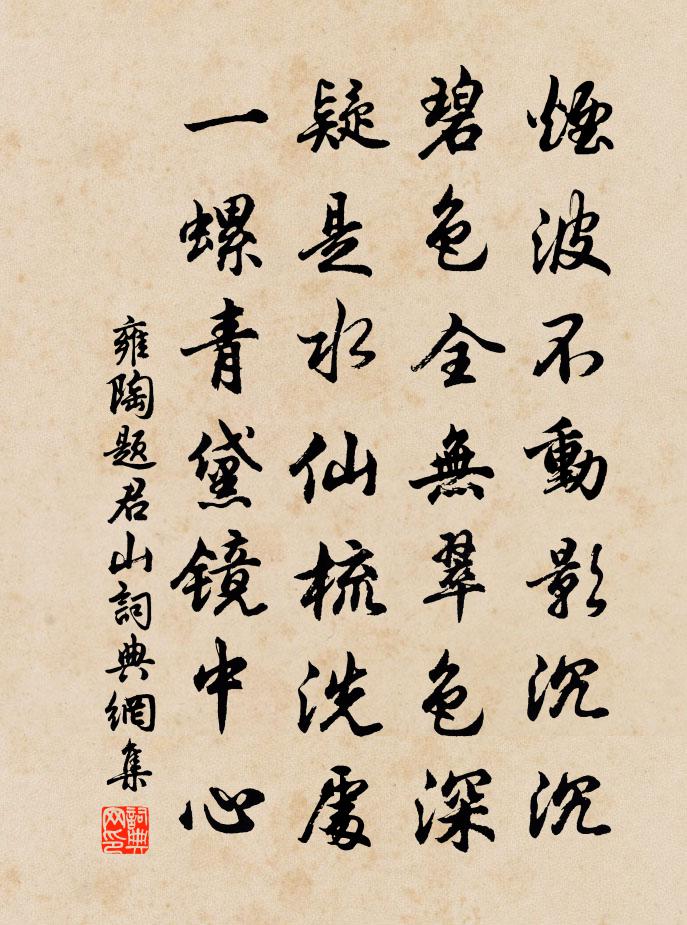 煙波不動影沉沉
碧色全無翠色深
疑是水仙梳洗處
一螺青黛镜中心
雍陶題君山詞典網集
詞典网印